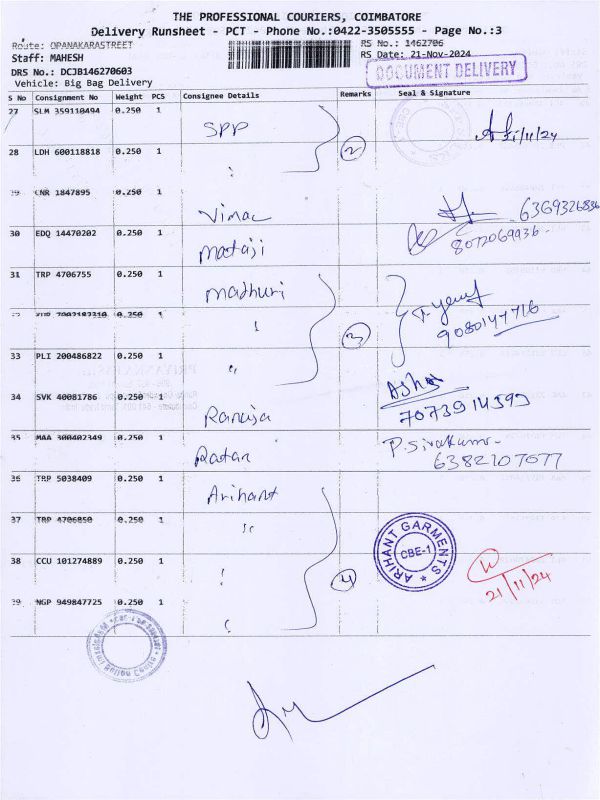 THE PROFESSIONAL COURIERS, COIMBATORE
Delivery Runsheet - PCT - Phone No.:0422-3505555 - Page No.:3
Route: OPANAKARASTREET RS No.: 1462706
Staff: MAHESH RS Date: 21-Nov-2024
DRS No.: DCJB146270603
DOCUMENT DELIVERY
Vehicle: Big Bag Delivery
S No Consignment No Weight PCS Consignee Details Remarks Seal & Signature
27 SLM 359110494 0.250 1 SPP
28 LDH 600118818 0.250 1 " 2
29 CNR 1847895 0.250 1 Vimal 6369326836
30 EDQ 14470202 0.250 1 Mataji 8072069936
31 TRP 4706755 0.250 1 Madhuri
0.250 1 " 3 9080147716
33 PLI 200486822 0.250 1 "
34 SVK 40081786 0.250 1 7073914599
35 MAA 300402349 0.250 1 Ratan P. Sivakumar 6382107077
36 TRP 5038409 0.250 1 Arihant
37 TRP 4706850 0.250 1 "
ARIHANT GARMENTS CBE-1
38 CCU 101274889 0.250 1 " 4
21/11/24
39 NGP 949847725 0.250 1 "